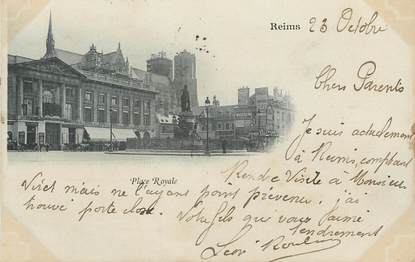 Reims 23 Octobre
Chers Parents
Je suis actuellement
à Reims, comptant
Rendre Visite à Monsieur
Place Royale
Viot mais ne l'ayant point prévenu. j'ai
trouvé porte close. Votre fils qui vous aime
tendrement
Léon